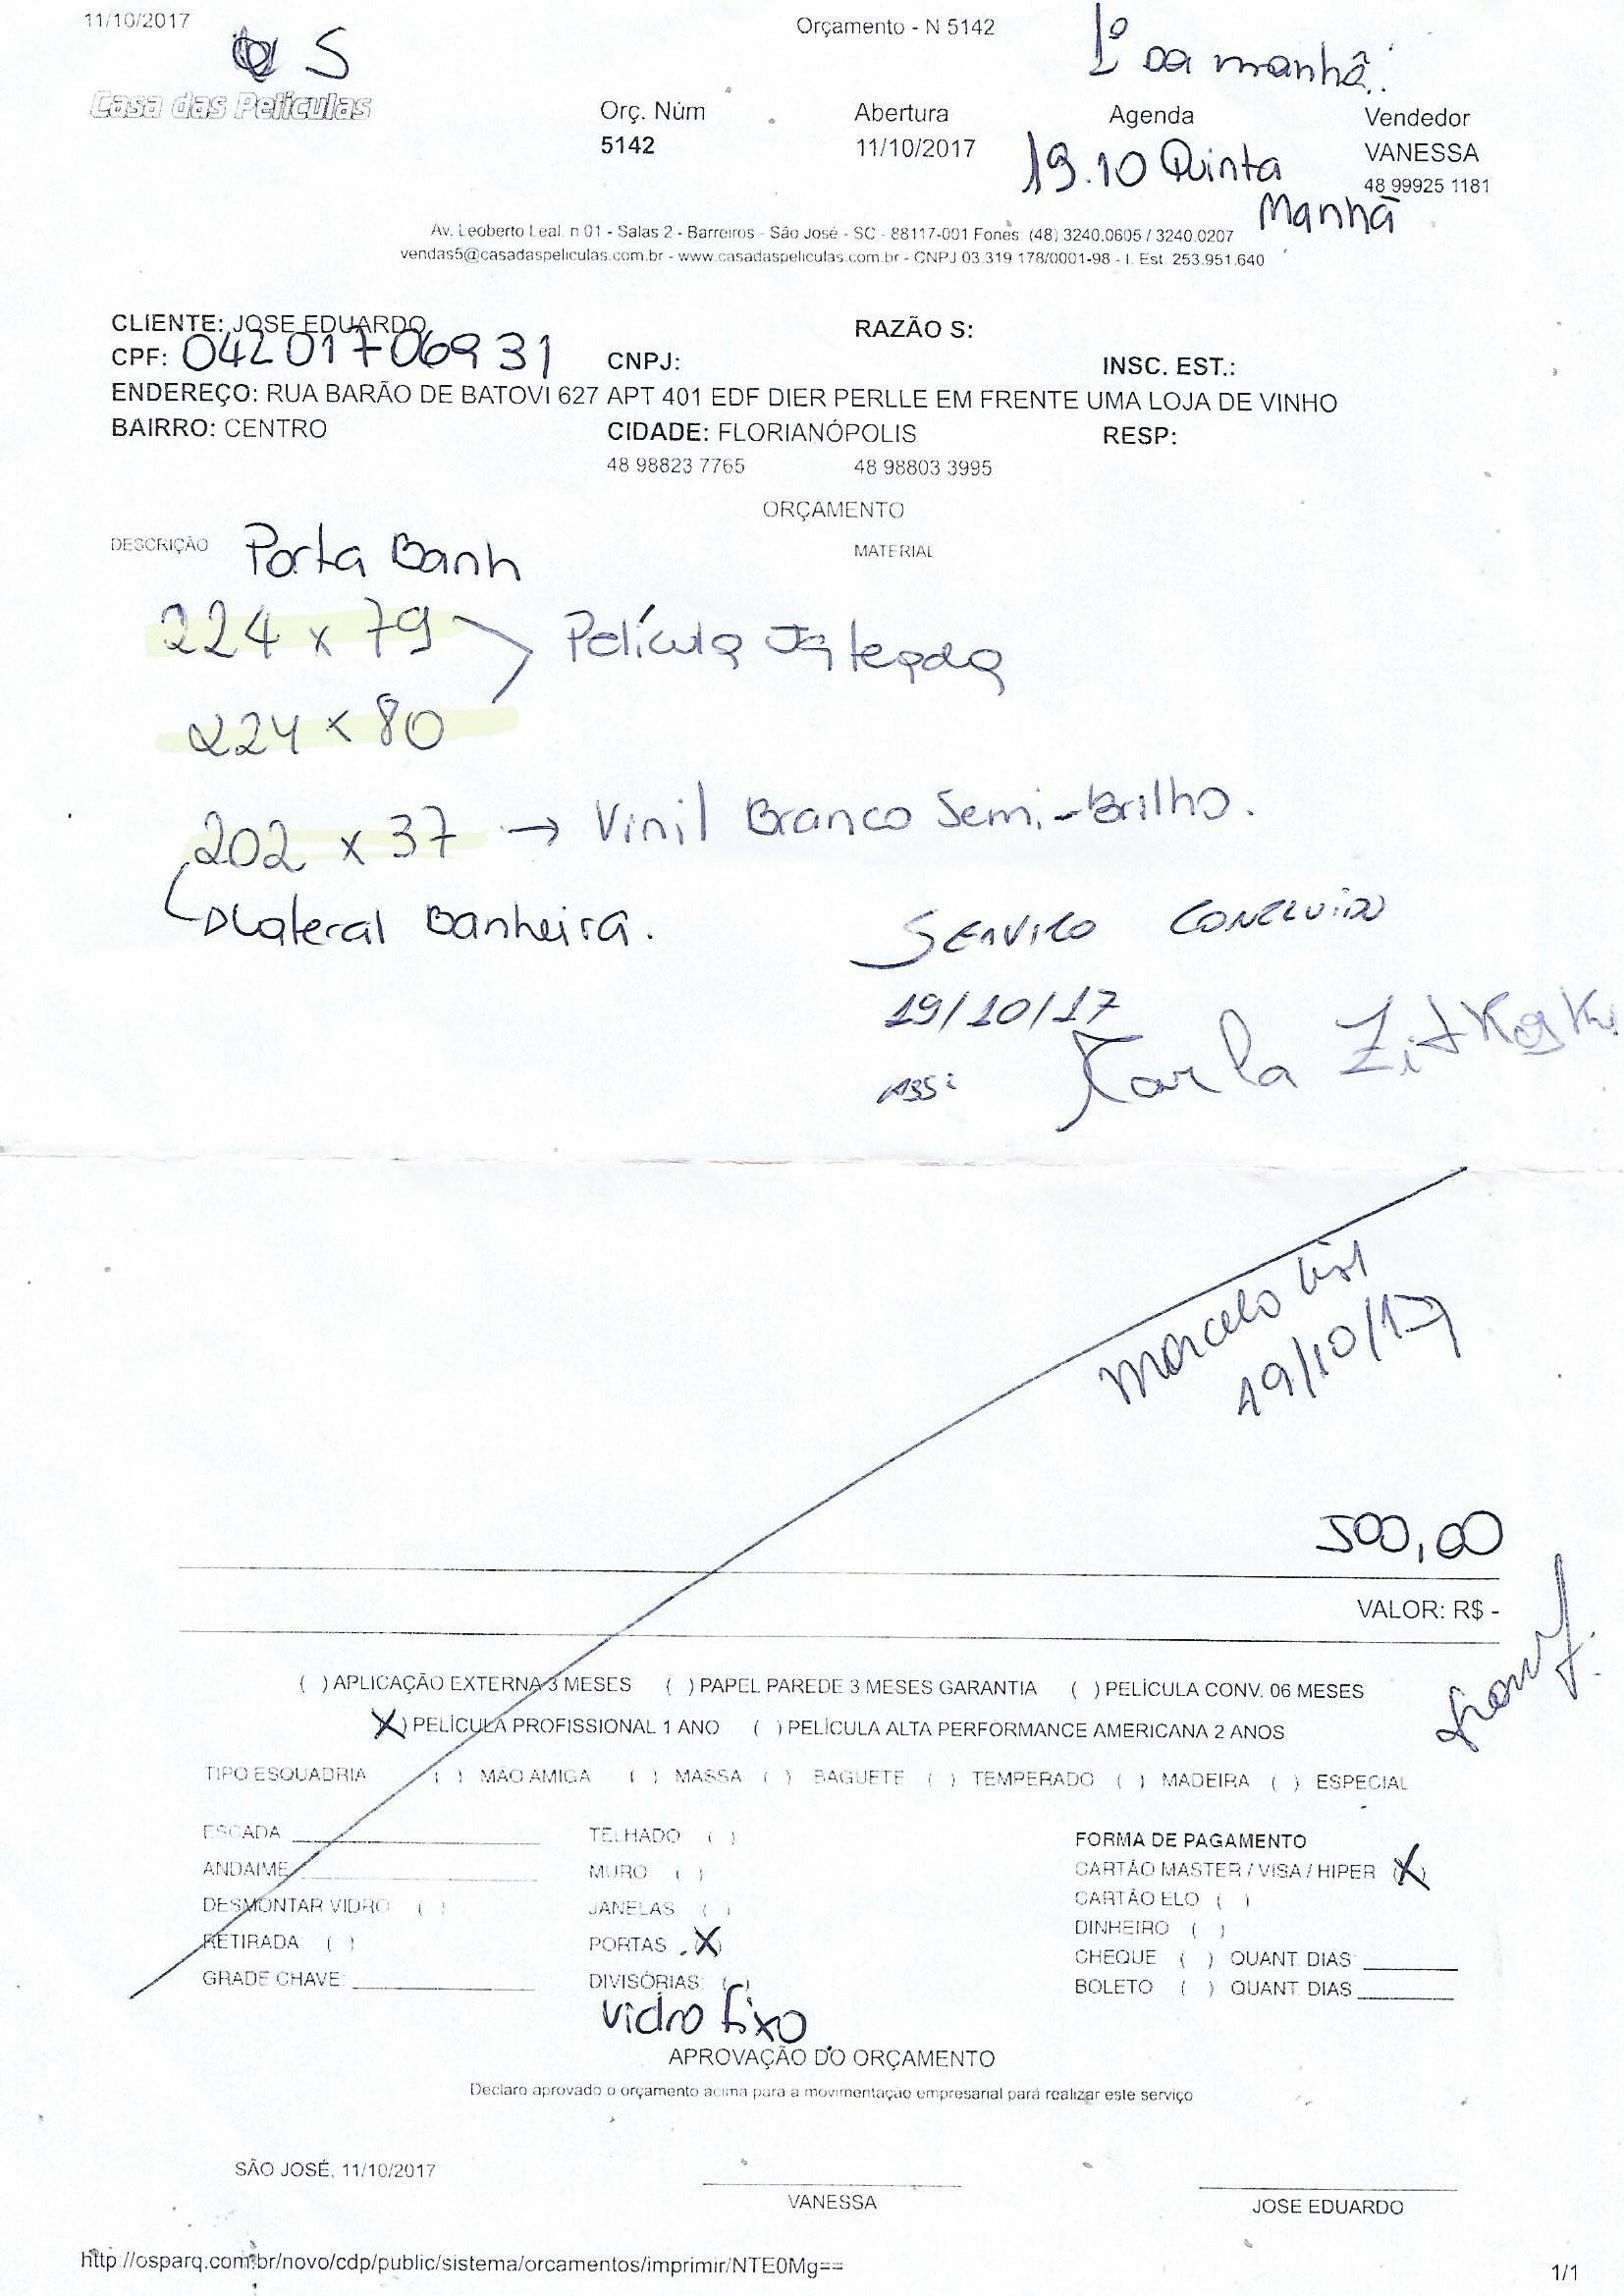 11/10/2017
Orçamento - N 5142
1º da manhã.
5
Casa das Películas
Orç. Núm
Abertura
Agenda
Vendedor
5142
11/10/2017
19.10 Quinta
Manhã
VANESSA
48 99925 1181
Av. Leoberto Leal, n 01 - Salas 2 - Barreiros - São José - SC - 88117-001 Fones: (48) 3240.0605 / 3240.0207
vendas5@casadaspeliculas.com.br - www.casadaspeliculas.com.br - CNPJ 03.319.178/0001-98 - I. Est. 253.951.640
CLIENTE: JOSE EDUARDO
RAZÃO S:
CPF: 04201706931
CNPJ:
INSC. EST.:
ENDEREÇO: RUA BARÃO DE BATOVI 627 APT 401 EDF DIER PERLLE EM FRENTE UMA LOJA DE VINHO
BAIRRO: CENTRO
CIDADE: FLORIANÓPOLIS
RESP:
48 98823 7765
48 98803 3995
ORÇAMENTO
DESCRIÇÃO
MATERIAL
Porta Banh
224 x 79
Película Jateada
224 x 80
202 x 37 → Vinil Branco Semi-Brilho.
Lateral Banheira.
SERVIÇO CONCLUIDO
19/10/17
ASS: Karla
Marcelo
19/10/17
500,00
VALOR: R$ -
( ) APLICAÇÃO EXTERNA 3 MESES ( ) PAPEL PAREDE 3 MESES GARANTIA ( ) PELÍCULA CONV. 06 MESES
(X) PELÍCULA PROFISSIONAL 1 ANO ( ) PELÍCULA ALTA PERFORMANCE AMERICANA 2 ANOS
TIPO ESQUADRIA ( ) MÃO AMIGA ( ) MASSA ( ) BAGUETE ( ) TEMPERADO ( ) MADEIRA ( ) ESPECIAL
ESCADA
ANDAIME
DESMONTAR VIDRO ( )
RETIRADA ( )
GRADE CHAVE:
TELHADO ( )
MURO ( )
JANELAS ( )
PORTAS (X)
DIVISÓRIAS: ( )
Vidro fixo
FORMA DE PAGAMENTO
CARTÃO MASTER / VISA / HIPER (X)
CARTÃO ELO ( )
DINHEIRO ( )
CHEQUE ( ) QUANT. DIAS:
BOLETO ( ) QUANT. DIAS
APROVAÇÃO DO ORÇAMENTO
Declaro aprovado o orçamento acima para a movimentação empresarial para realizar este serviço
SÃO JOSÉ, 11/10/2017
VANESSA
JOSE EDUARDO
http://osparq.com.br/novo/cdp/public/sistema/orcamentos/imprimir/NTE0Mg==
1/1